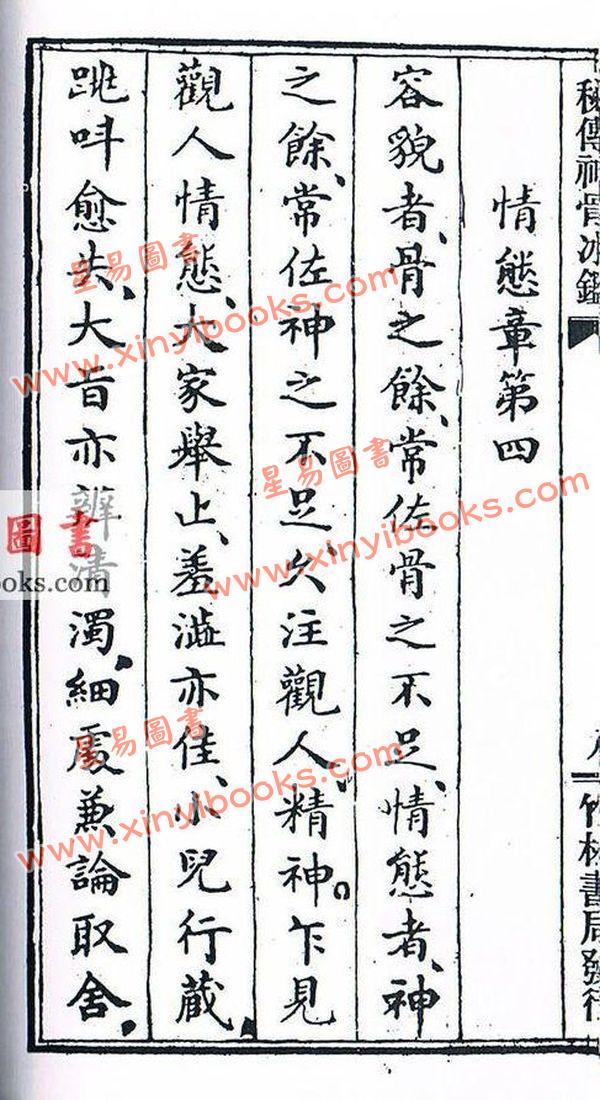 秘傳神骨冰鑑
情態章第四
容貌者、骨之餘、常佐骨之不足、情態者、神
之餘、常佐神之不足、久注觀人、精神。乍見
觀人情態、大家舉止、羞澁亦佳、小兒行藏、
跳呌愈失、大旨亦辨清濁、細處兼論取舍、
竹林書局發行
星易圖書
www.xinyibooks.com
星易圖書
www.xinyibooks.com
星易圖書
www.xinyibooks.com
圖書
books.com